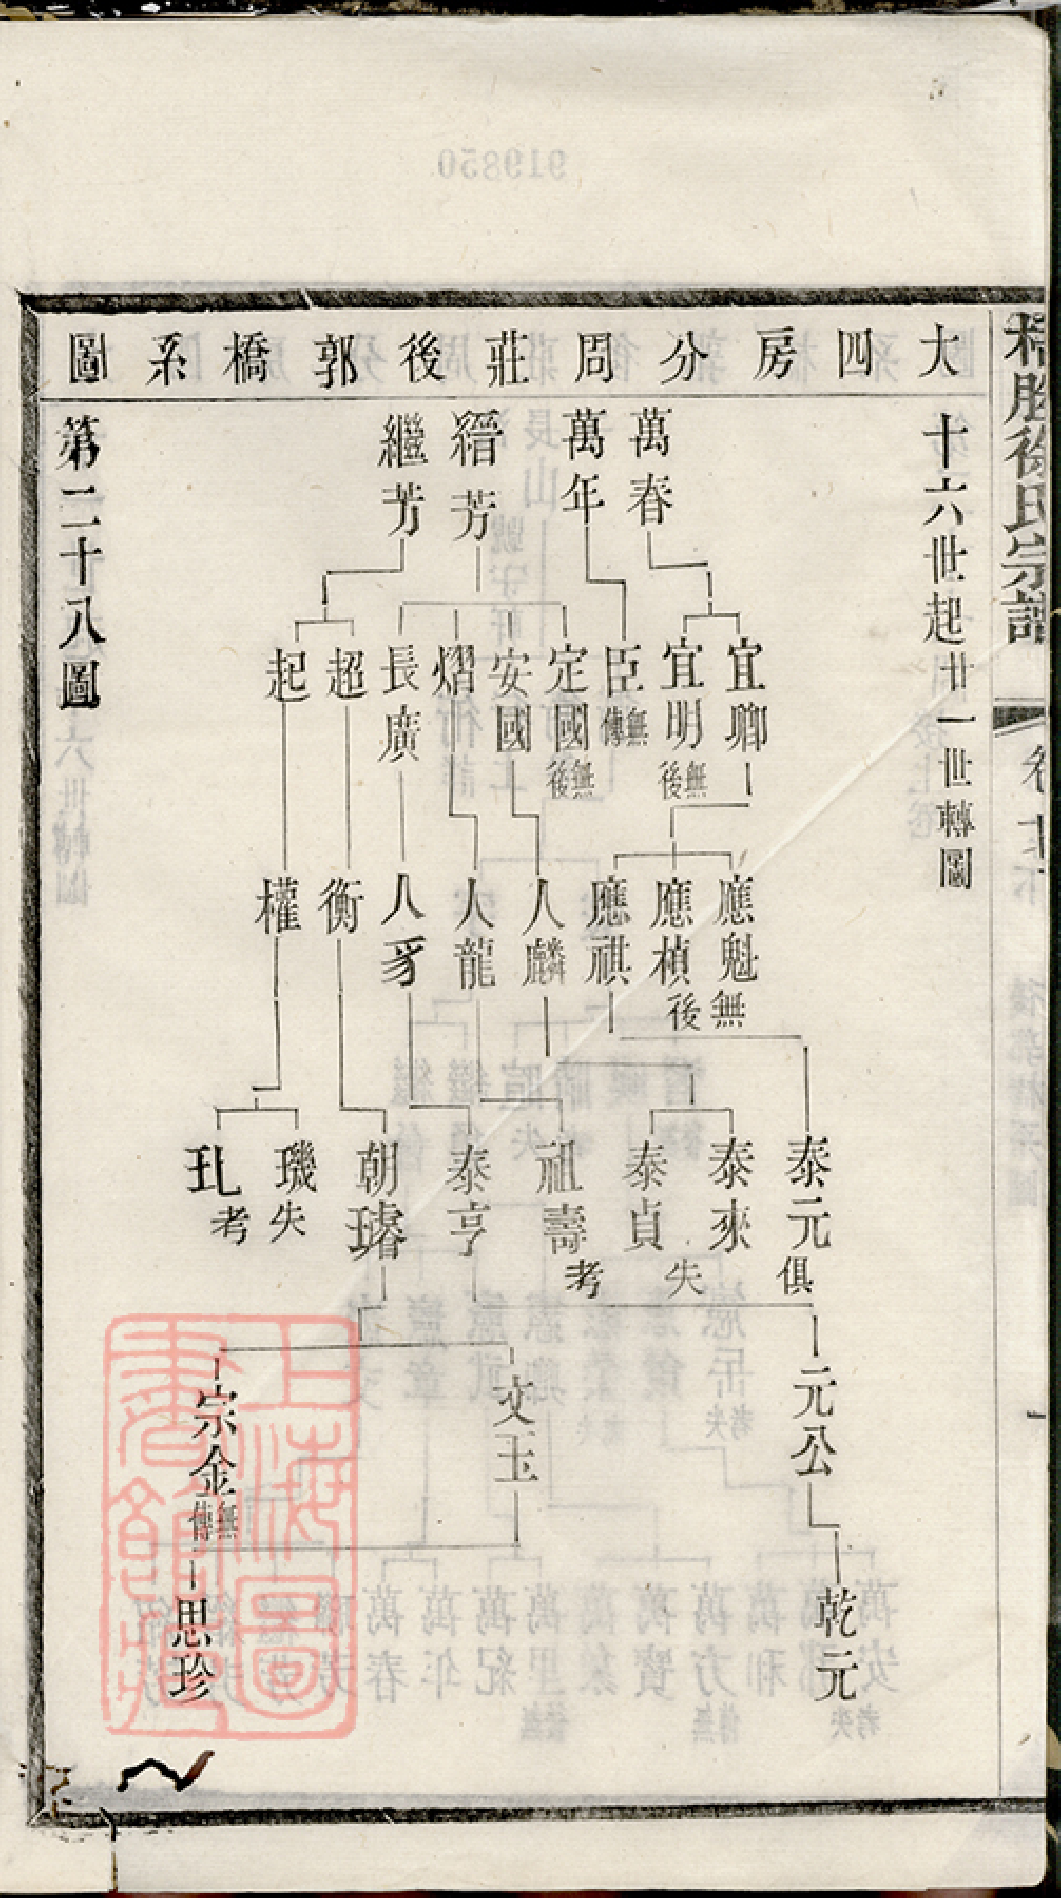 大四房分問莊後郭橋系圖
十六世起廿一世轉圖
萬春
萬年
縉芳
繼芳
宜卿
宜明 無後
臣 無傳
定國 無後
安國
熠
長廣
超
起
應魁
應楨
應祺
無後
人麟
人龍
人豸
衡
權
泰元
泰來
泰貞
祖壽
俱失考
泰亨
朝璿
璣
玌
失考
元公
文玉
宗金 無傳
乾元
思珍
第二十八圖
徐氏宗譜
上海圖書館藏